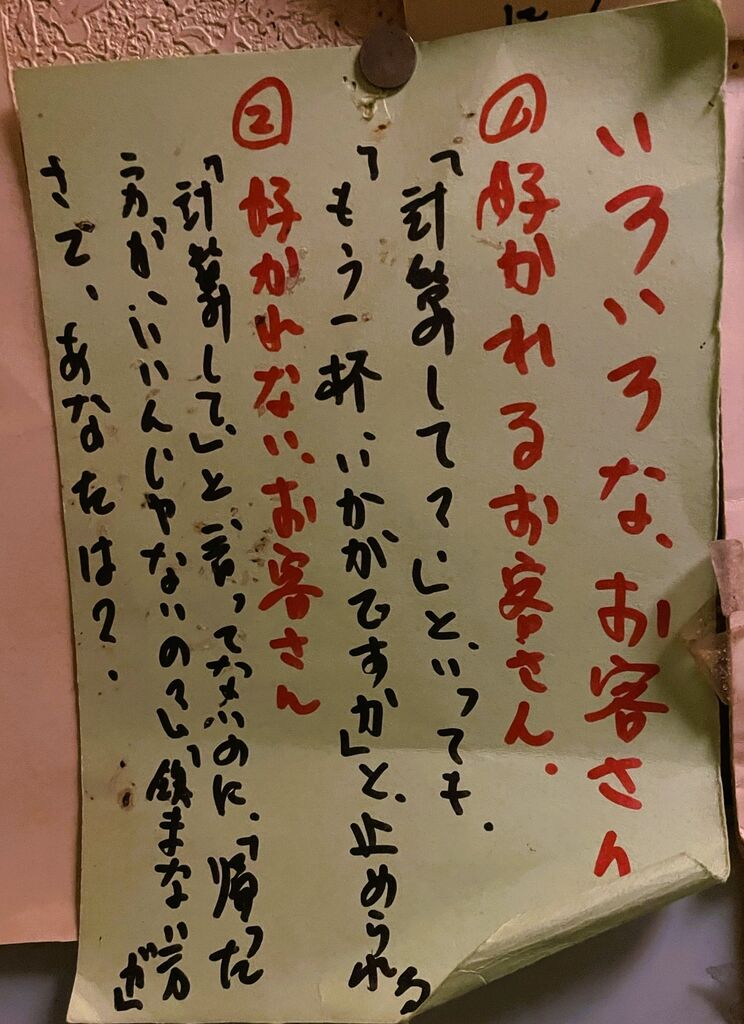 いろいろな、お客さん
① 好かれるお客さん.
「計算してて」と、いっても.
「もう一杯いかがですか」と、止められる
② 好かれない、お客さん
「計算して、」と、言ってないのに、「帰った
方が、いいんじゃないのて」、「飲まない方が」
さて、あなたは?.